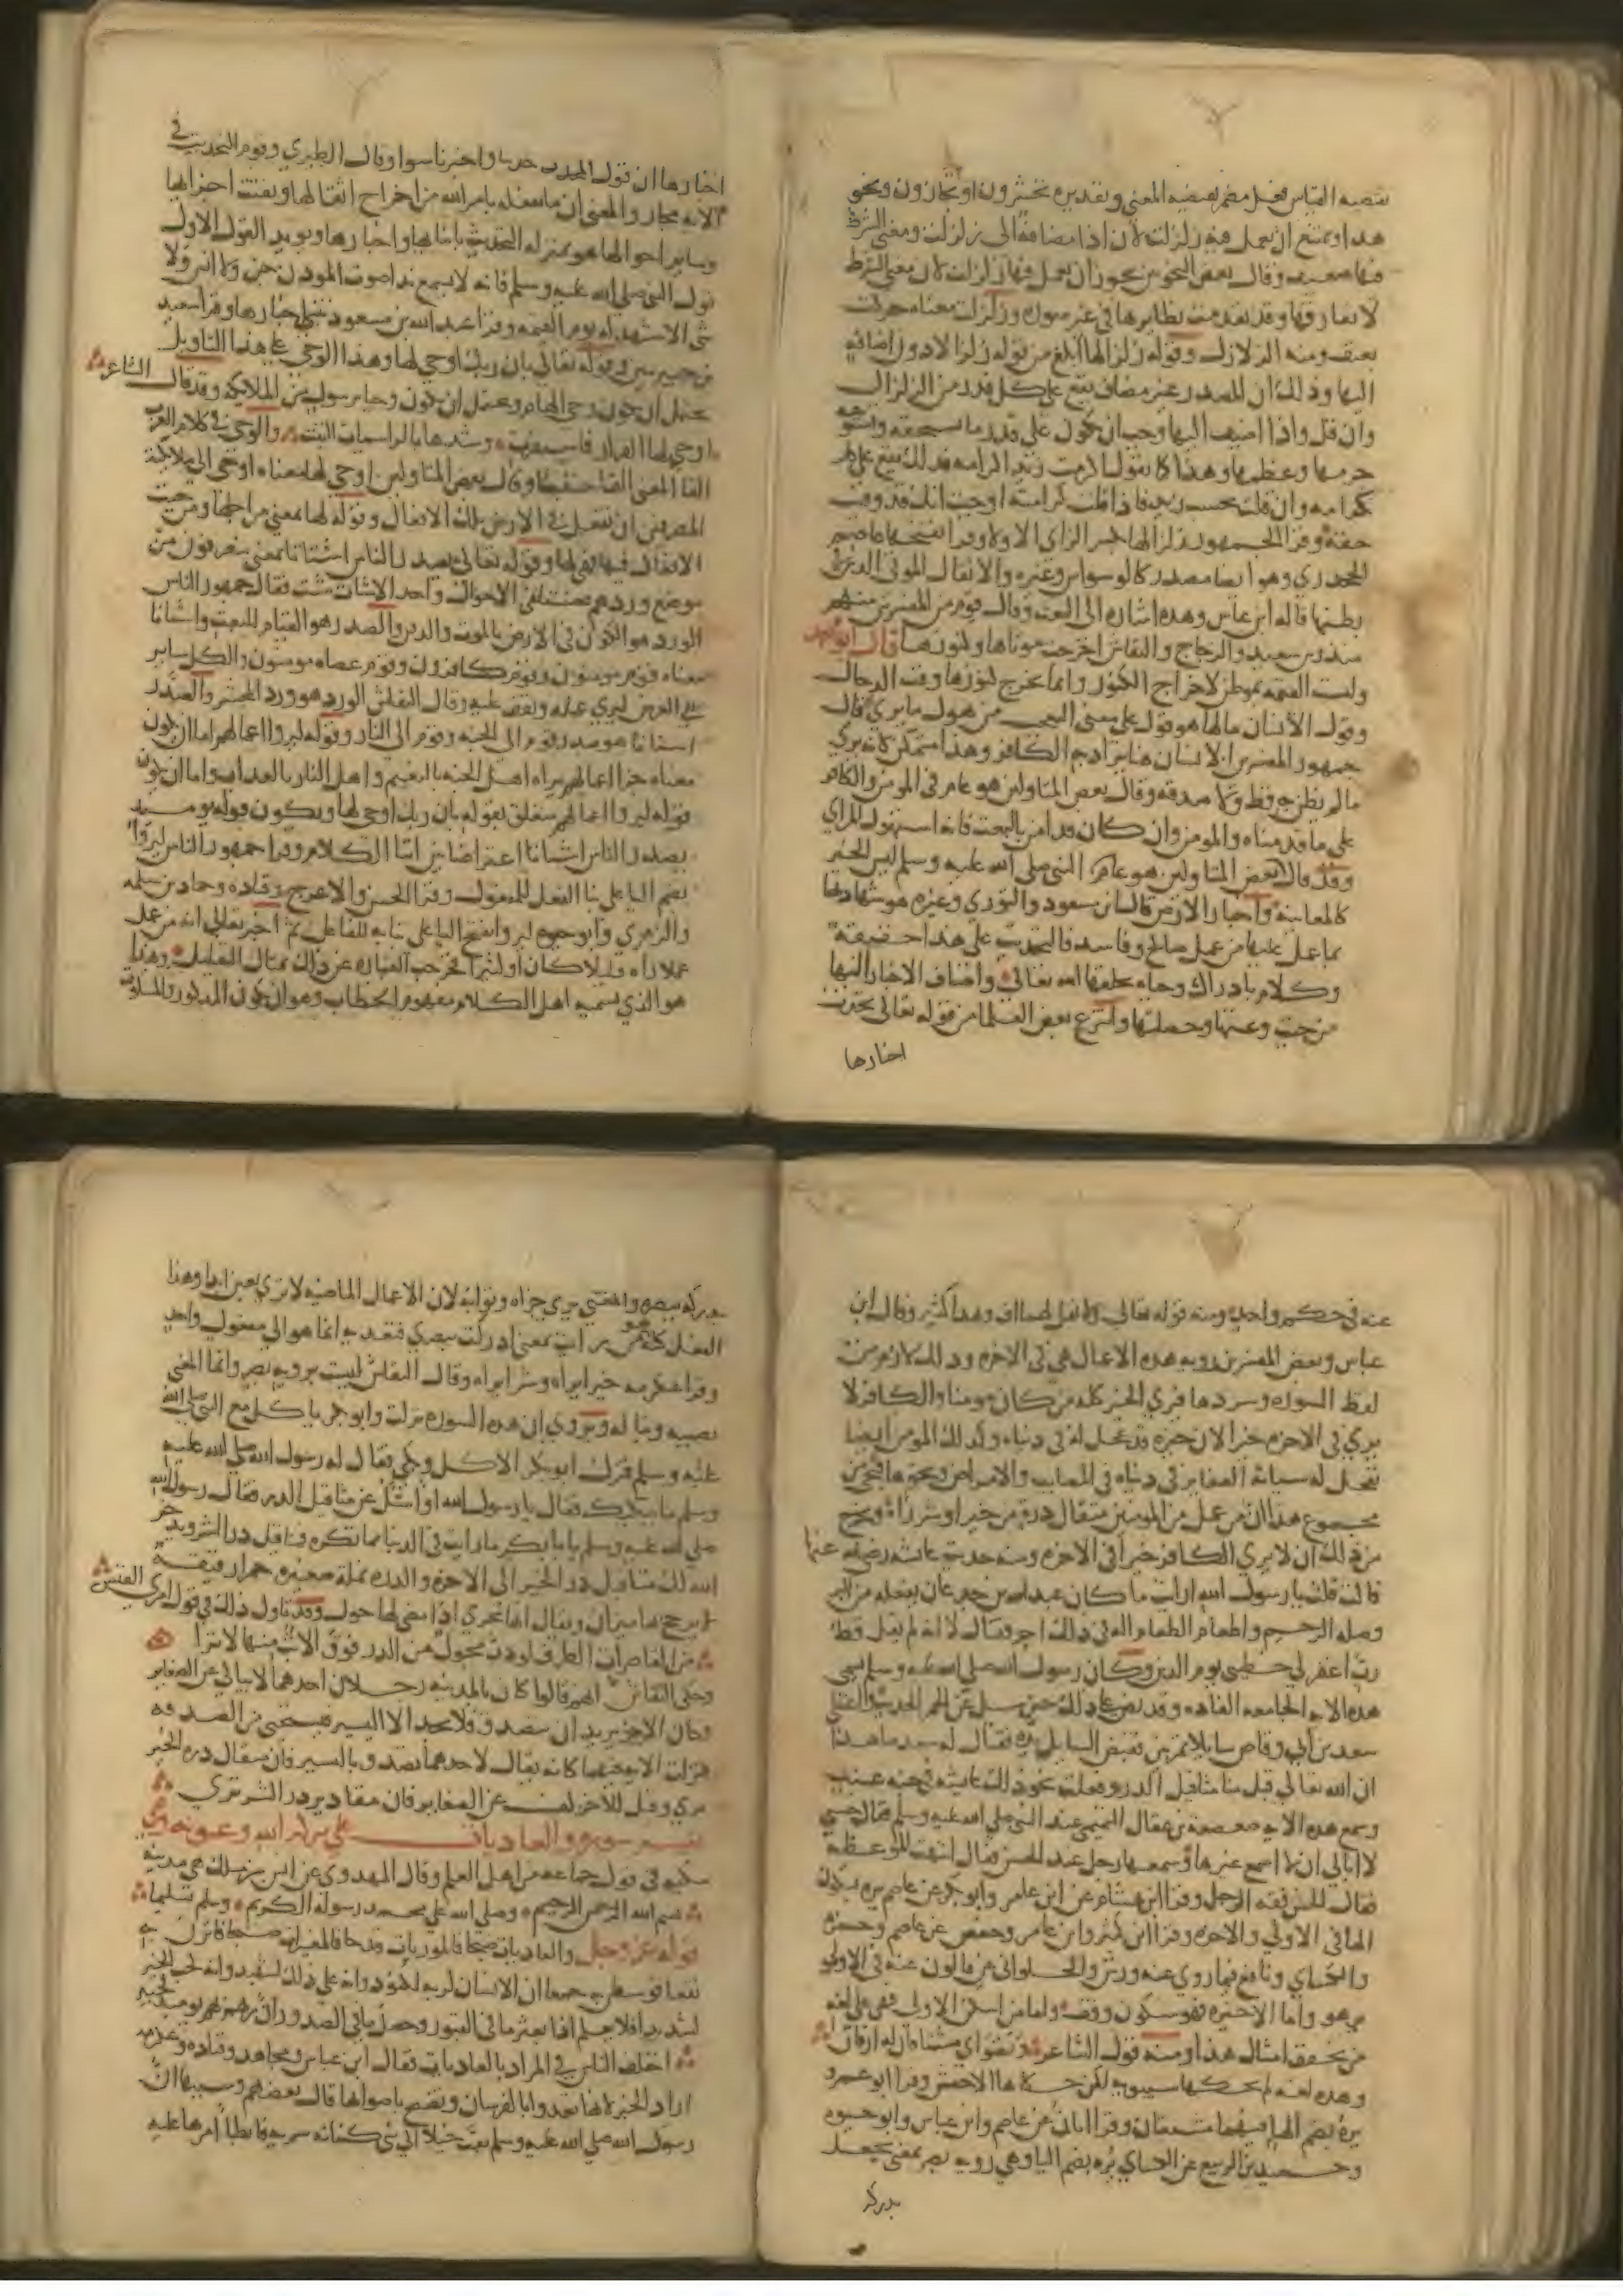 تقتضيه القياس فعل مضمر يقتضيه المعنى وتقديره تحشرون او تجازون ونحو
هذا ويمتنع ان يعمل فيه زلزلت لان اذا مضافة الى زلزلت ومعنى الشرط
فيها ضعيف وقال بعض النحويين يجوز ان يعمل فيها زلزلت لان معنى الشرط
لا يفارقها وقد تقدمت نظايرها في غير سورة وزلزلت معناه حركت
بعنف ومنه الزلازل وقوله زلزالها ابلغ من قوله زلزالا دون اضافة
اليها وذلك ان المصدر غير مضاف يقع على كل قدر من الزلزال
وان قل واذا اضيف اليها وجب ان يكون على قدر ما تستحقه وتستوجبه
جرمها وعظمها وهذا كما تقول اكرمت زيدا كرامة فذلك يقع على كل
كرامة وان قلت بحسب زيد فاذا قلت كرامته اوجبت انك قد وفيت
حقه وقرا الجمهور زلزالها بكسر الزاي الاولى وقرا بفتحها عاصم
الجحدري وهو ايضا مصدر كالوسواس وغيره والاثقال الموتى الذين في
بطنها قاله ابن عباس وهذه اشارة الى البعث وقال قوم من المفسرين منهم
منذر بن سعيد والزجاج والنقاش اخرجت موتاها وكنوزها قال ابو محمد
وليست القيمة بموطن لاخراج الكنوز وانما تخرج كنوزها وقت الدجال
وقول الانسان مالها هو قول على معنى التعجب من هول ما يرى قال
جمهور المفسرين الانسان هنا يراد به الكافر وهذا متمكن لانه يرى
ما لم يظن به قط ولا صدقه وقال بعض المتاولين هو عام في المومن والكافر
على ما قدمناه والمومن وان كان قد امن بالبعث فانه استهول المراي
وقد قال بعض المتاولين هو عام النبي صلى الله عليه وسلم ليس الخبر
كالمعاينة واخبار الارض قال ابن مسعود والثوري وغيره هو شهادتها
بما عمل عليها من عمل صالح وفاسد فالتحديث على هذا حقيقة
وكلام بادراك وحياة يخلقها الله تعالى واضاف الاخبار اليها
من حيث وعتها وحصلتها وانتزع بعض العلما من قوله تعالى تحدث
اخبارها
اخبارها ان قول المحدث حدثنا واخبرنا سوا وقال الطبري وقوم التحديث في
الاية مجاز والمعنى ان ما تفعله بامر الله من اخراج اثقالها وتفتت اجزايها
وساير احوالها هو بمنزلة التحديث بانبايها واخبارها ويويد القول الاول
قول النبي صلى الله عليه وسلم فانه لا يسمع مدا صوت الموذن جن ولا انس ولا
شي الا شهد له يوم القيمة وقرا عبد الله بن مسعود تنبي اخبارها وقرا سعيد
بن جبير تبين وقوله تعالى بان ربك اوحى لها وهذا الوحي على هذا التاويل
يحتمل ان يكون وحي الهام ويحتمل ان يكون وحيا برسول من الملايكة وقد قال الشاعر
اوحى لها القرار فاستقرت وشدها بالراسيات الثبت والوحي في كلام العرب
القا المعنى القا خفيا وقال بعض المتاولين اوحى لها معناه اوحى الى ملايكته
المصرفين ان تفعل في الارض تلك الافعال وقوله لها بمعنى من اجلها ومن حيث
الافعال فيها فهي لها وقوله تعالى يصدر الناس اشتاتا بمعنى ينصرفون من
موضع وردهم مختلفي الاحوال واحد الاشتات شت فقال جمهور الناس
الورد هو الكون في الارض بالموت والدفن والصدر هو القيام للبعث واشتاتا
معناه قوم مومنون وقوم كافرون وقوم عصاة مومنون والكل ساير
الى العرض ليرى عمله ويقف عليه وقال النقاش الورد هو ورد المحشر والصدر
اشتاتا هو صدر قوم الى الجنة وقوم الى النار وقوله ليروا اعمالهم اما ان يكون
معناه جزا اعمالهم يراه اهل الجنة بالنعيم واهل النار بالعذاب واما ان يكون
قوله ليروا اعمالهم متعلق بقوله بان ربك اوحى لها ويكون قوله يوميد
يصدر الناس اشتاتا اعتراضا بين اثنا الكلام وقرا جمهور الناس ليروا
بضم اليا على بنا الفعل للمفعول وقرا الحسن والاعرج وقتادة وحماد بن سلمة
والزهري وابو حيوة ليروا بفتح اليا على بنايه للفاعل ثم اخبر تعالى انه من عمل
عملا راه قليلا كان او كثيرا فخرجت العبارة عن ذلك بمثال التقليل وهذا
هو الذي يسميه اهل الكلام مفهوم الخطاب وهو ان يكون المذكور والمسكوت
عنه في حكم واحد ومنه قوله تعالى ولا تقل لهما اف وهذا كثير وقال ابن
عباس وبعض المفسرين روية هذه الاعمال هي في الاخرة وذلك لازم من
لفظ السورة وسردها فيرى الخير كله من كان مومنا والكافر لا
يرى في الاخرة خيرا لان خيره قد عجل له في دنياه وكذلك المومن ايضا
تعجل له سياته الصغاير في دنياه في المصايب والامراض ونحوها فيجي من
مجموع هذا ان من عمل من المومنين مثقال ذرة من خير او شر راه ويخرج
من ذلك ان لا يرى الكافر خيرا في الاخرة ومنه حديث عايشة رضي الله عنها
قالت قلت يا رسول الله ارايت ما كان عبد الله بن جدعان يفعله من البر
وصلة الرحم واطعام الطعام اله في ذلك اجر فقال لا انه لم يقل قط
رب اغفر لي خطيتي يوم الدين وكان رسول الله صلى الله عليه وسلم يسمي
هذه الاية الجامعة الفاذة وقد نص على ذلك حين سيل عن الحمر الحديث واعطى
سعد بن ابي وقاص سايلا تمرتين فقبض السايل يده فقال له سعد ما هذا
ان الله تعالى قبل منا مثاقيل الذر وفعلت نحو ذلك عايشة في حبة عنب
وسمع هذه الاية صعصعة بن عقال التميمي عند النبي صلى الله عليه وسلم فقال حسبي
لا ابالي ان لا اسمع غيرها وسمعها رجل عند الحسن فقال انتهت الموعظة
فقال الحسن فقه الرجل وقرا هشام عن ابن عامر وابو بكر عن عاصم يره بسكون
الها في الاولى والاخرة وقرا ابن كثير وابن عامر وحفص عن عاصم وحمزة
والكساي ونافع فيما روى عنه ورش والحلواني عن قالون عنه في الاولى
يرهو واما الاخيرة فهو سكون وقف واما من اسكن الاولى فهي على لغة
من يخفف امثال هذا ومنه قول الشاعر ونضواي مشتاقان له ارقان
وهذه لغة لم يحكها سيبويه لكن حكاها الاخفش وقرا ابو عمرو
يره بضم الها فيهما مشبعتان وقرا ابان عن عاصم وابن عباس وابو حيوة
وحميد بن الربيع عن الكساي يره بضم اليا وهي روية بصر بمعنى يجعل
يدركه
يدركه ببصره والمعنى يرى جزاه وثوابه لان الاعمال الماضية لا ترى بعين ابدا وهذا
الفعل كله هو من رايت بمعنى ادركت ببصري فتعديه انما هو الى مفعول واحد
وقرا عكرمة خيرا يراه وشرا يراه وقال النقاش ليست بروية بصر وانما المعنى
يصيبه ويناله ويروى ان هذه السورة نزلت وابو بكر ياكل مع النبي صلى الله
عليه وسلم فترك ابو بكر الاكل وبكى فقال له رسول الله صلى الله عليه
وسلم ما يبكيك فقال يا رسول الله او اسئل عن مثاقيل الذر فقال رسول الله
صلى الله عليه وسلم يا ابا بكر ما رايت في الدنيا مما تكره فمثاقيل ذر الشر ويدخر
الله لك مثاقيل ذر الخير الى الاخرة والذرة نملة صغيرة حمرا رقيقة
لا يرجح بها ميزان ويقال انها تجري اذا مضى لها حول وقد تاول ذلك في قول امرئ القيس
من القاصرات الطرف لو دب محول من الذر فوق الاتب منها لاثرا
وحكى النقاش انهم قالوا كان بالمدينة رجلان احدهما لا يبالي عن الصغاير
وكان الاخر يريد ان يتصدق فلا يجد الا اليسير فيستحيي من الصدقة
فنزلت الاية فيهما كانه يقال لاحدهما تصدق باليسير فان مثقال ذرة الخير
يرى وقيل للاخر كف عن الصغاير فان مقادير ذر الشر ترى
تفسير سورة والعاديات على بركة الله وعونه وهي
مكية في قول جماعة من اهل العلم وقال المهدوي عن انس بن ملك هي مدينة
بسم الله الرحمن الرحيم وصلى الله على محمد رسوله الكريم وسلم تسليما
قوله عز وجل والعاديات ضبحا فالموريات قدحا فالمغيرات صبحا فاثرن به
نقعا فوسطن به جمعا ان الانسان لربه لكنود وانه على ذلك لشهيد وانه لحب الخير
لشديد افلا يعلم اذا بعثر ما في القبور وحصل ما في الصدور ان ربهم بهم يوميذ لخبير
اختلف الناس في المراد بالعاديات فقال ابن عباس ومجاهد وقتادة وعكرمة
اراد الخيل لانها تعدوا بالفرسان وتضبح باصواتها قال بعضهم وسببها ان
رسول الله صلى الله عليه وسلم بعث خيلا الى بني كنانة سرية فابطا امرها عليه